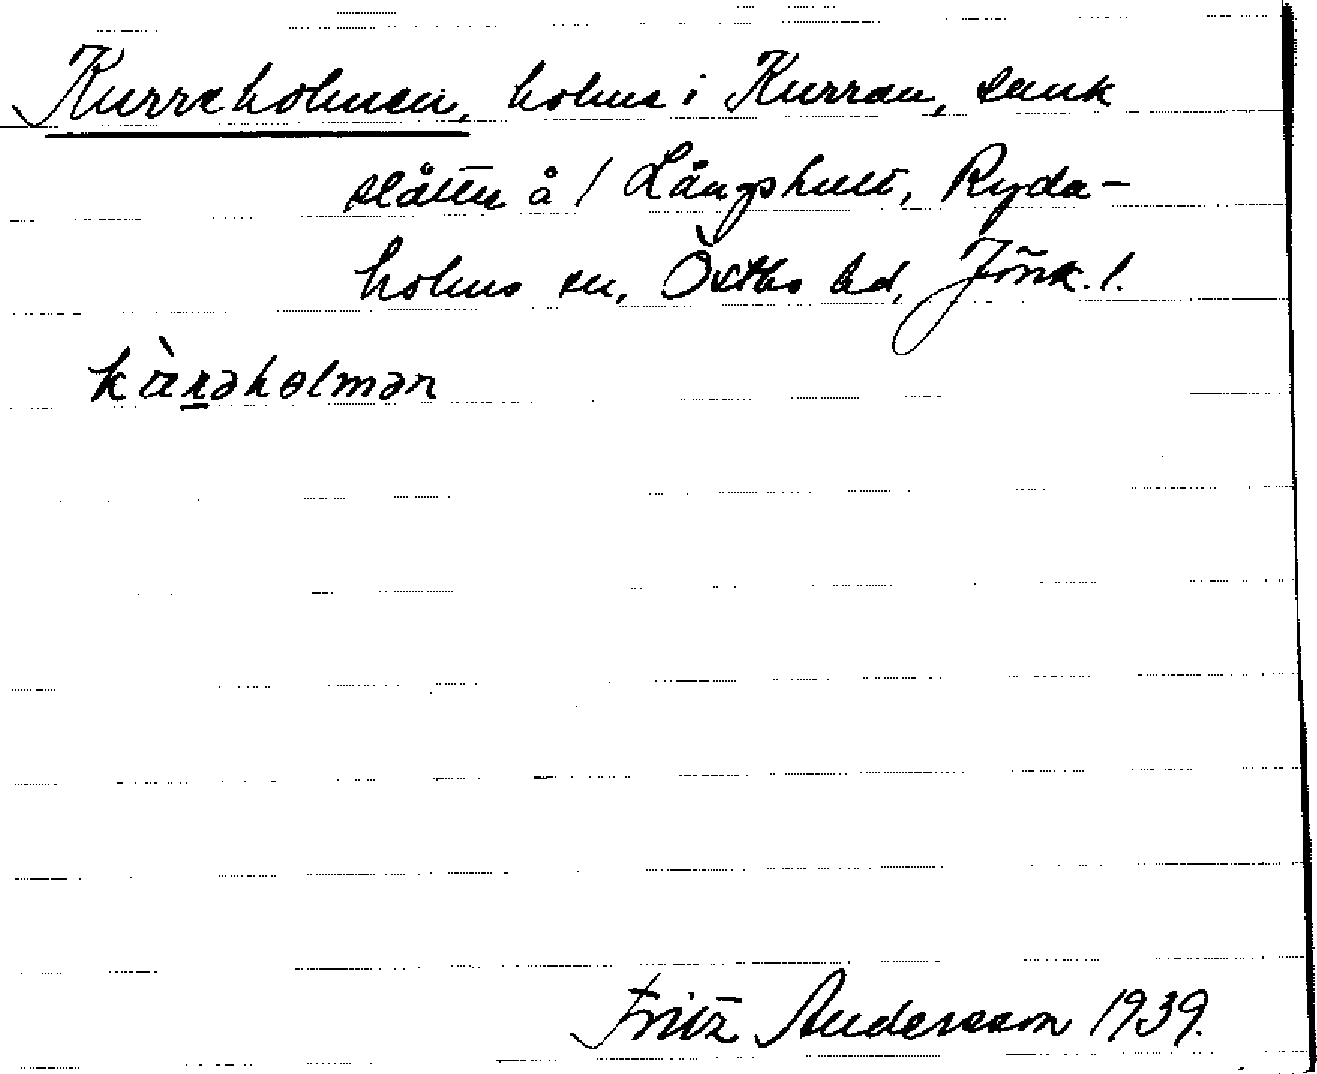 Kurreholmen, holme i Kurran, sank
slåtter å / Långshult, Ryda-
holms sn, Östbo hd, Jönk. l.
kàrəhɵlmən
Fritz Andersson 1939.